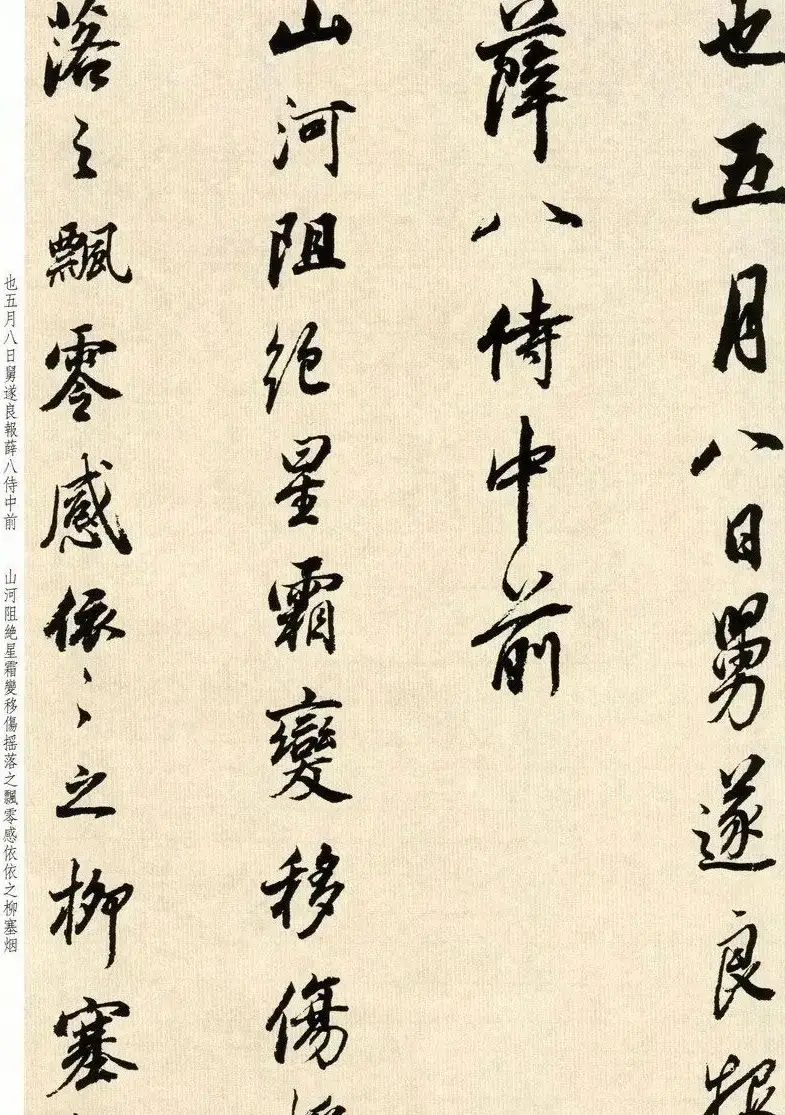 也五月八日舅遂良報
薛八侍中前
山河阻絶星霜變移傷摇
落之飄零感依〻之柳塞
也五月八日舅遂良報薛八侍中前　山河阻絶星霜變移傷摇落之飄零感依依之柳塞烟